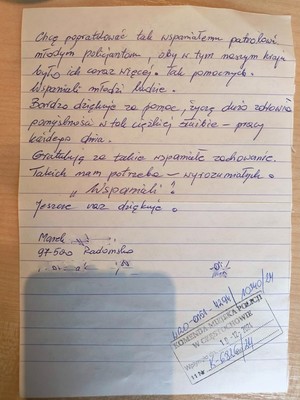 Chcę pogratulować tak wspaniałemu patrolowi
młodym policjantom, aby w tym naszym kraju
było ich coraz więcej. Tak pomocnych.
Wspaniali młodzi ludzie.
Bardzo dziękuję za pomoc, życzę dużo zdrowia
pomyślności w tak ciężkiej służbie - pracy
każdego dnia.
Gratuluję za takie wspaniałe zachowanie.
Takich nam potrzeba - wyrozumiałych.
"Wspaniali"!
Jeszcze raz dziękuję.
Marek
97-500 Radomsko
KOMENDA MIEJSKA POLICJI
W CZĘSTOCHOWIE